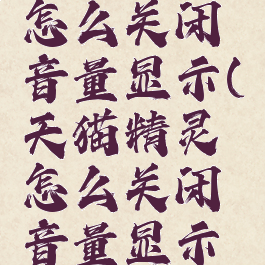 怎么关闭
音量显示(
天猫精灵
怎么关闭
音量显示